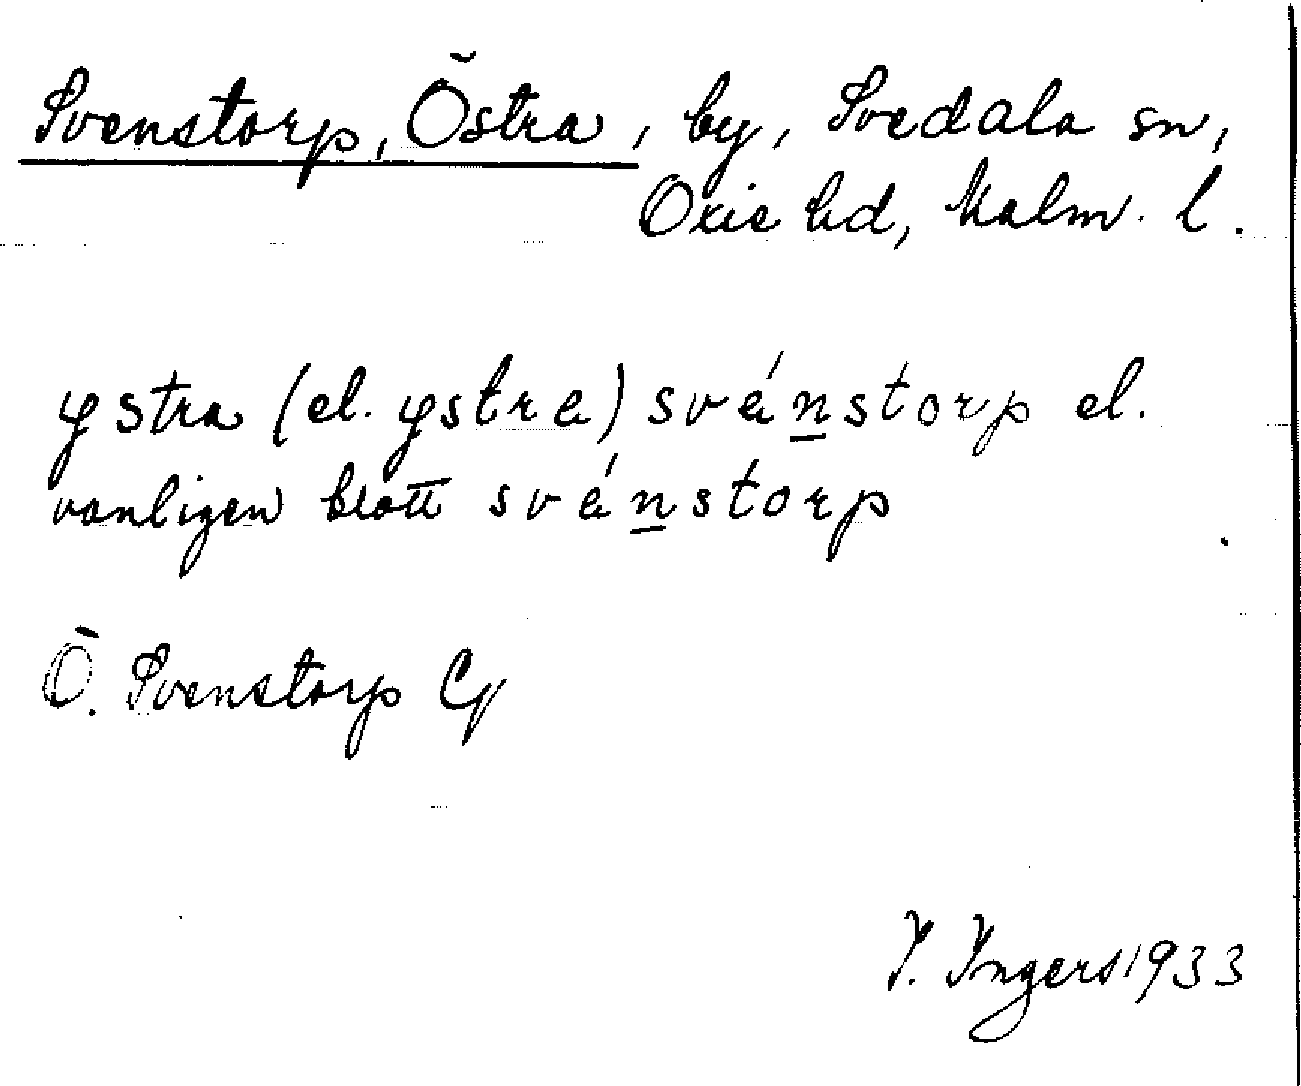 Svenstorp, Östra, by, Svedala sn,
Oxie hd, Malm. l.
ystra (el. ystre) svánstorp el.
vanligen blott svánstorp
Ö. Svenstorp
I. Ingers 1933